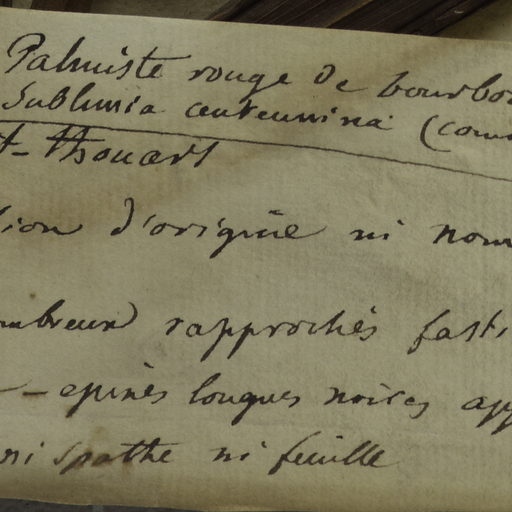 Palmiste rouge de bourbon
Sublimia centennina (Comm
t-thouars
tion d'origine ni nom
ombreux rapprochés fasti
- epines longues noires app
ni spathe ni feuille